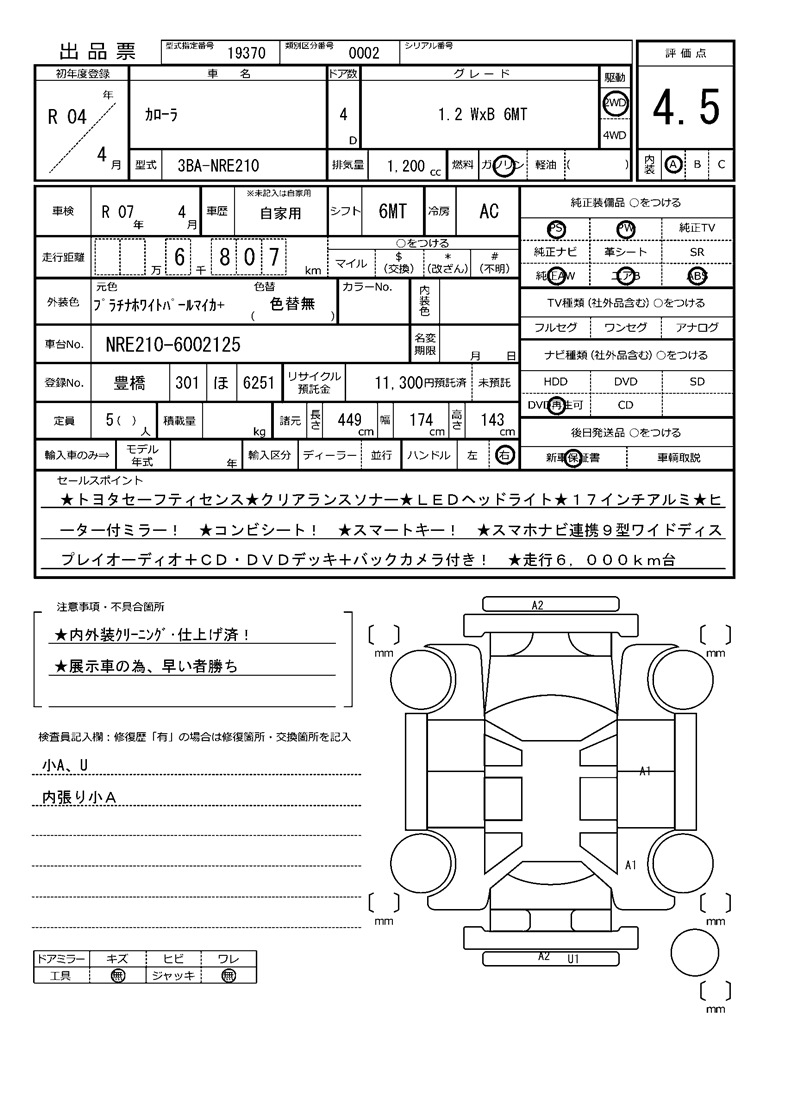 出品票
型式指定番号 19370 類別区分番号 0002 シリアル番号
評価点
4.5
内装 A B C
初年度登録 車名 ドア数 グレード 駆動
R 04 年 4 月
カローラ
4 D
1.2 WxB 6MT
2WD
4WD
型式 3BA-NRE210 排気量 1,200 cc 燃料 ガソリン 軽油 ( )
車検 R 07 年 4 月 車歴 ※未記入は自家用 自家用 シフト 6MT 冷房 AC
走行距離 万 6 千 8 0 7 km
○をつける
マイル $(交換) *(改ざん) #(不明)
外装色 元色 プラチナホワイトパールマイカ+ 色替 ( 色替無 ) カラーNo. 内装色
車台No. NRE210-6002125 名変期限 月 日
登録No. 豊橋 301 ほ 6251 リサイクル預託金 11,300円預託済 未預託
定員 5( ) 人 積載量 kg 諸元 長さ 449 cm 幅 174 cm 高さ 143 cm
輸入車のみ⇒ モデル年式 年 輸入区分 ディーラー 並行 ハンドル 左 右
純正装備品 ○をつける
PS PW 純正TV
純正ナビ 革シート SR
純正AW エアB ABS
TV種類(社外品含む)○をつける
フルセグ ワンセグ アナログ
ナビ種類(社外品含む)○をつける
HDD DVD SD
DVD再生可 CD
後日発送品 ○をつける
新車保証書 車輌取説
セールスポイント
★トヨタセーフティセンス★クリアランスソナー★ＬＥＤヘッドライト★１７インチアルミ★ヒ
ーター付ミラー！ ★コンビシート！ ★スマートキー！ ★スマホナビ連携９型ワイドディス
プレイオーディオ＋ＣＤ・ＤＶＤデッキ＋バックカメラ付き！ ★走行６，０００ｋｍ台
注意事項・不具合箇所
★内外装ｸﾘｰﾆﾝｸﾞ・仕上げ済！
★展示車の為、早い者勝ち
検査員記入欄：修復歴「有」の場合は修復箇所・交換箇所を記入
小A、U
内張り小Ａ
ドアミラー キズ ヒビ ワレ
工具 無 ジャッキ 無
A2
mm mm
A1
A1
mm mm
A2 U1
mm